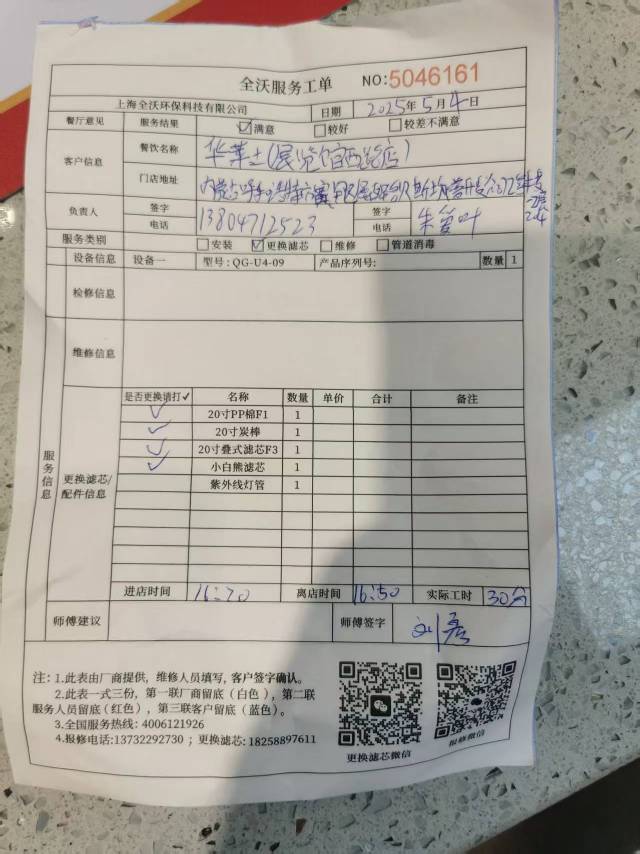 全沃服务工单 NO:5046161
上海全沃环保科技有限公司 日期 2025年5月4日
餐厅意见 服务结果 ☑满意 □较好 □较差不满意
客户信息 餐饮名称 华莱士(展览馆西路店)
门店地址 内蒙古呼
负责人 签字 签字
电话 13804712523 电话
服务类别 □安装 ☑更换滤芯 □维修 □管道消毒
设备信息 设备一 型号:QG-U4-09 产品序列号: 数量 1
检修信息
维修信息
服务信息
更换滤芯/配件信息
是否更换请打✓ 名称 数量 单价 合计 备注
✓ 20寸PP棉F1 1
✓ 20寸炭棒 1
✓ 20寸叠式滤芯F3 1
✓ 小白熊滤芯 1
紫外线灯管 1
进店时间 16:20 离店时间 16:50 实际工时 30分
师傅建议 师傅签字
注:1.此表由厂商提供,维修人员填写,客户签字确认。
2.此表一式三份,第一联厂商留底(白色),第二联
服务人员留底(红色),第三联客户留底(蓝色)。
3.全国服务热线: 4006121926
4.报修电话:13732292730 ; 更换滤芯: 18258897611
更换滤芯微信
报修微信